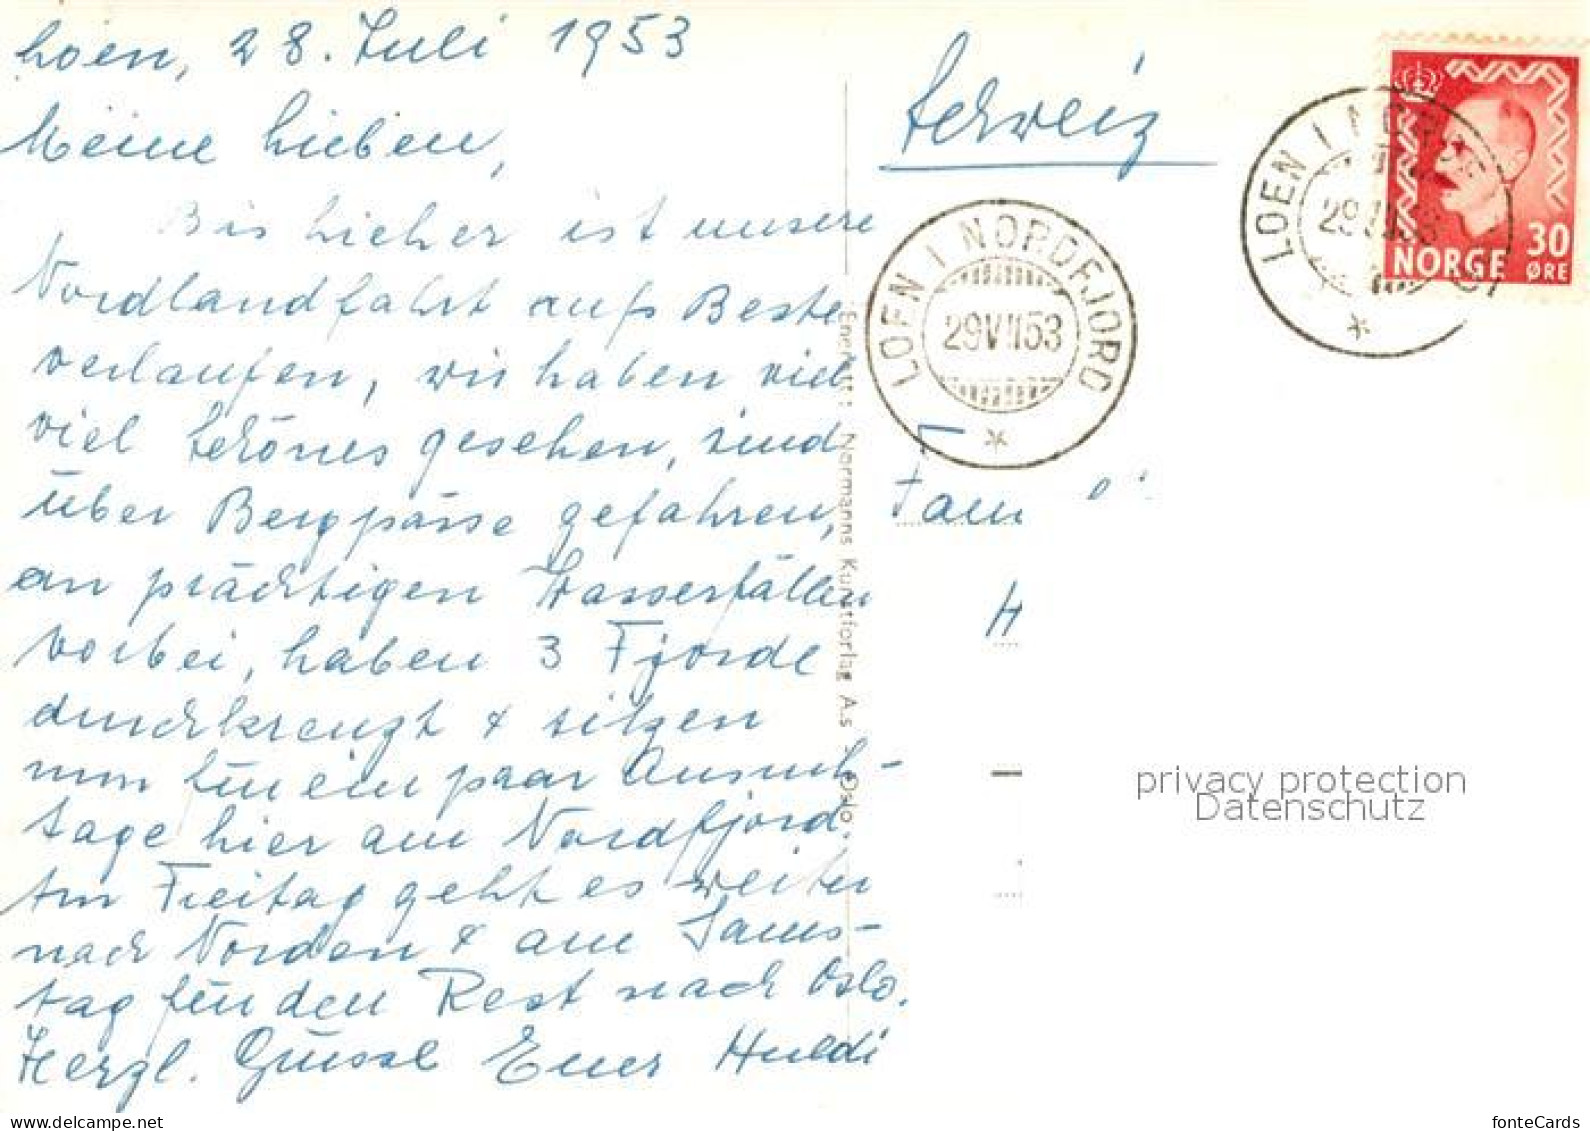 Loen, 28. Juli 1953
Meine Lieben,
Bis hieher ist unsere
Nordlandfahrt aufs Beste
verlaufen, wir haben viel
viel schönes gesehen, sind
über Bergpässe gefahren,
an prächtigen Wasserfällen
vorbei, haben 3 Fjorde
durchkreuzt & sitzen
nun für ein paar Ausruh-
tage hier am Nordfjord.
Am Freitag geht es weiter
nach Norden & am Sams-
tag für den Rest nach Oslo.
Herzl. Grüsse Euer Huldi
Enerett: Normanns Kunstforlag A.s - Oslo.
Schweiz
LOEN I NORDFJORD
29VII53
LOEN I NORDFJORD
NORGE 30 ØRE
Fam
H
privacy protection
Datenschutz
www.delcampe.net
Vision
fonteCards